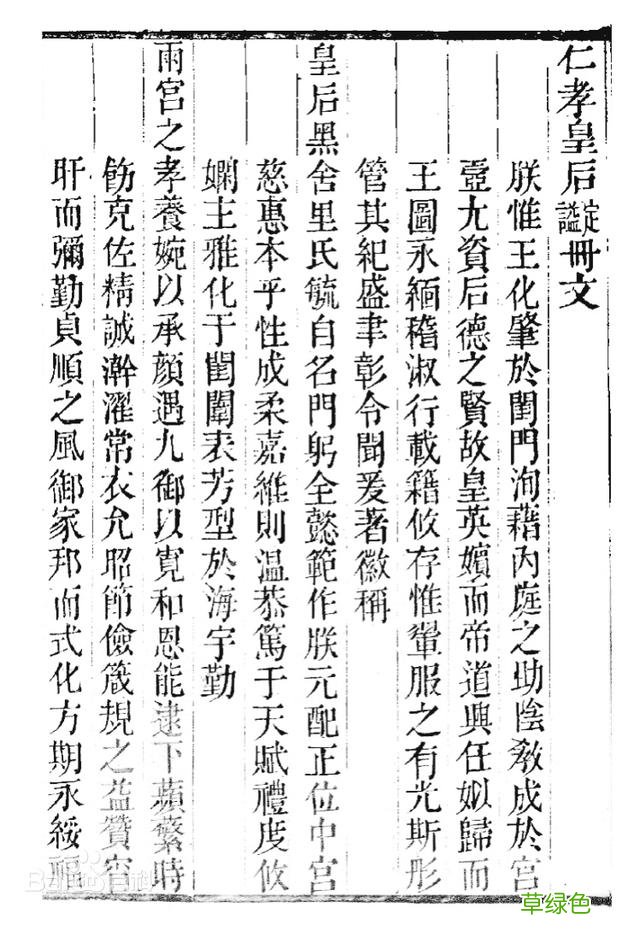 仁孝皇后諡冊文
朕惟王化肇於閨門洵藉內庭之助陰敎成於宮
壼尤資后德之賢故皇英嬪而帝道興任姒歸而
王圖永緬稽淑行載籍攸存惟翬服之有光斯彤
管其紀盛聿彰令聞爰著徽稱
皇后黑舍里氏毓自名門躬全懿範作朕元配正位中宮
慈惠本乎性成柔嘉維則溫恭篤于天賦禮度攸
嫻主雅化于閨闈表芳型於海宇勤
兩宮之孝養婉以承顏遇九御以寬和恩能逮下蘋蘩時
飭克佐精誠澣濯常衣允昭節儉箴規之益贊宵
旰而彌勤貞順之風御家邦而式化方期永綏福
Bai百科
草绿色